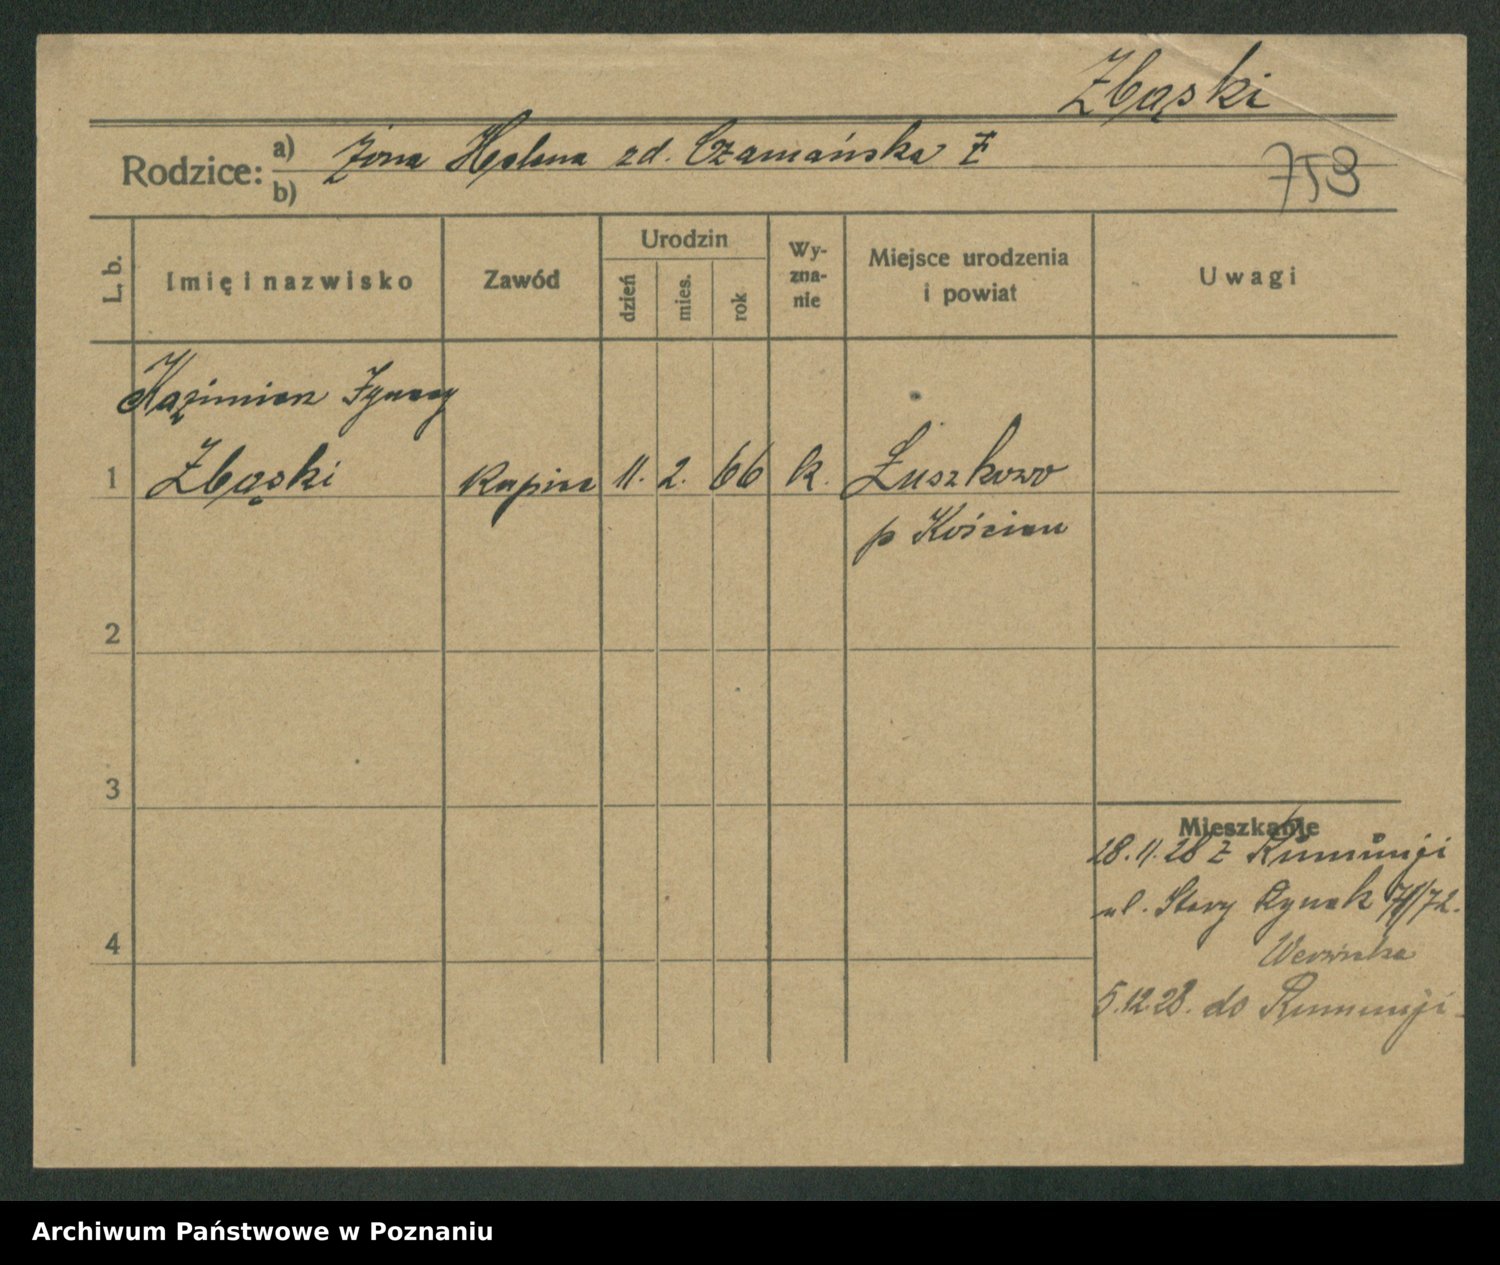 Zbąski
Rodzice: a) Żona Helena zd. Czamańska
b)
753
L. b.
Imię i nazwisko
Zawód
Urodzin
dzień
mies.
rok
Wy-
zna-
nie
Miejsce urodzenia
i powiat
Uwagi
Kazimierz Ignacy
1 Zbąski kupiec 11. 2. 66 k. Łuszkowo
p Kościan
2
3
4
Mieszkanie
28.11.28 z Rumunji
ul. Stary Rynek 71/72.
5.12.28. do Rumunji
Archiwum Państwowe w Poznaniu